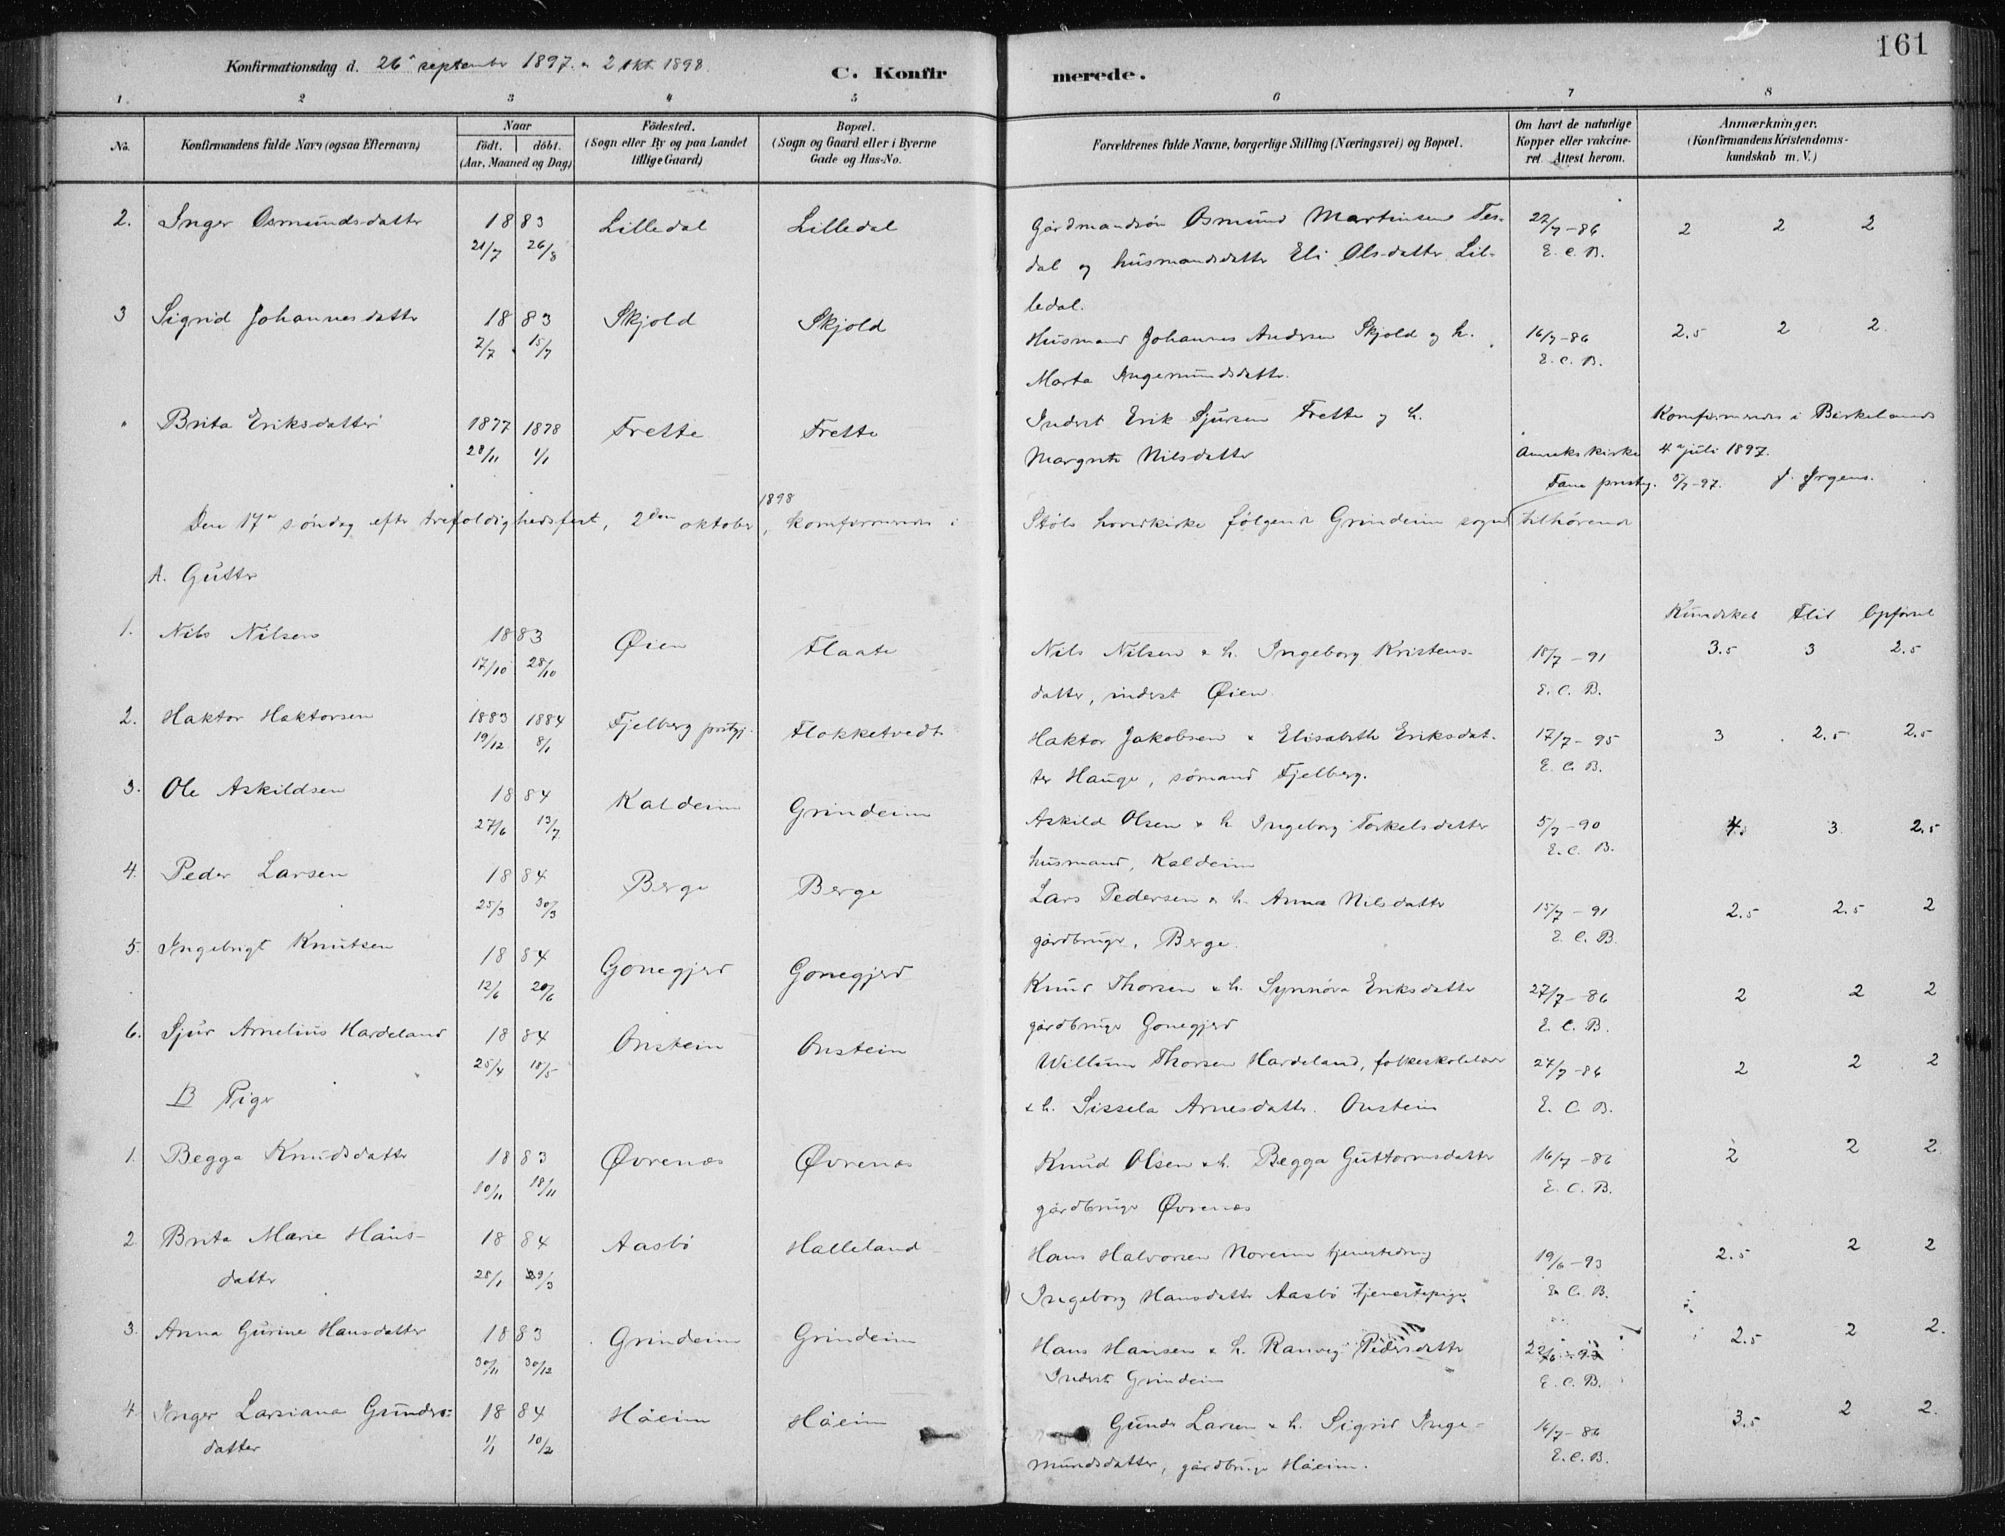 161
Konfirmationsdag d. 26' september 1897. & 2 okt. 1898.
C. Konfirmerede.
1 2 3 4 5 6 7 8
No.
Konfirmandens fulde Navn (ogsaa Efternavn)
Naar
födt. döbt.
(Aar, Maaned og Dag)
Födested.
(Sogn eller By og paa Landet
tillige Gaard)
Bopæl.
(Sogn og Gaard eller i Byerne
Gade og Hus-No.
Forældrenes fulde Navne, borgerlige Stilling (Næringsvei) og Bopæl.
Om havt de naturlige
Kopper eller vakcine-
ret Attest herom.
Anmærkninger.
(Konfirmandens Kristendoms-
kundskab m. V.)
2. Inger Osmundsdatter 1883 Lilledal Lilledal Gårdmandsön Osmund Martinsen Tes- 22/7-86 2 2 2
21/7 26/8 dal og husmandsdatter Eli Olsdatter Lil- E. C. B.
ledal.
3 Sigrid Johannesdatter 1883 Skjold Skjold Husmand Johannes Andersen Skjold og h. 16/7-86 2.5 2 2
2/7 15/7 Marta Ingemundsdatter. E. C. B.
" Brita Eriksdatter 1877 1878 Frette Frette Inderst Erik Sjursen Frette og h. Komfirmeret i Birkelands
28/11 1/1 Margrete Nilsdatter Annekskirke 4' juli 1897.
Fana prestg. 5/7-97. J. Jrgens.
Den 17' söndag efter trefoldighedsfest, 2den oktober 1898, komfirmeret i Skåle hovedkirke følgende Grindeim sogn tilhørende
A. Gutter
Kundskab Flid Opførsel
1. Nils Nilsen 1883 Øien Flaate Nils Nilsen & h. Ingeborg Kristens- 18/7-91 3.5 3 2.5
17/10 28/10 datter, inderst Øien E. C. B.
2. Haktor Haktorsen 1883 1884 Fjelberg prstgj. Flokketvedt Haktor Jakobsen & Elisabeth Eriksdat- 17/7-95 3 2.5 2.5
19/12 8/1 ter Hauge, sømand Fjelberg. E. C. B.
3. Ole Askildsen 1884 Kaldeim Grindeim Askild Olsen & h. Ingeborg Torkelsdatter 5/7-90 4. 3. 2.5
27/6 13/7 husmand, Kaldeim E. C. B.
4. Peder Larsen 1884 Berge Berge Lars Pedersen & h. Anna Nilsdatter 15/7-91 2.5 2.5 2
25/3 30/3 gårdbruger, Berge. E. C. B.
5. Ingebrigt Knutsen 1884 Gonegjerd Gonegjerd Knud Thorsen & h. Synnöva Eriksdatter 27/7-86 2 2 2
12/6 20/6 gårdbruger Gonegjerd E. C. B.
6. Sjur Arnelius Hardeland 1884 Onstein Onstein Willum Thorsen Hardeland, folkeskolelærer 27/7-86 2 2 2
25/4 18/5 & h. Sissela Arnesdatter. Onstein E. C. B.
B Piger
1. Begga Knudsdatter 1883 Øvrenæs Øvrenæs Knud Olsen & h. Begga Guttormsdatter 16/7-86 2 2 2
10/11 18/11 gårdbruger Øvrenæs E. C. B.
2 Brita Marie Hans- 1884 Aasbö Halleland Hans Halvorsen Noreim tjenestedreng 19/6-93 2.5 2 2
datter 28/1 29/3 Ingeborg Hansdatter Aasbö Tjenestepige E. C. B.
3. Anna Gurine Hansdatter 1883 Grindeim Grindeim Hans Hansen & h. Ranveig Pedersdatter 22/6-93 2.5 2 2.
30/11 30/12 Inderst Grindeim E. C. B.
4. Inger Larsiana Gunders- 1884 Håeim Håeim Gunder Larsen & h. Sigrid Inge- 16/7-86 3.5 2 2.
datter 1/1 10/2 mundsdatter, gårdbruger Håeim. E. C. B.